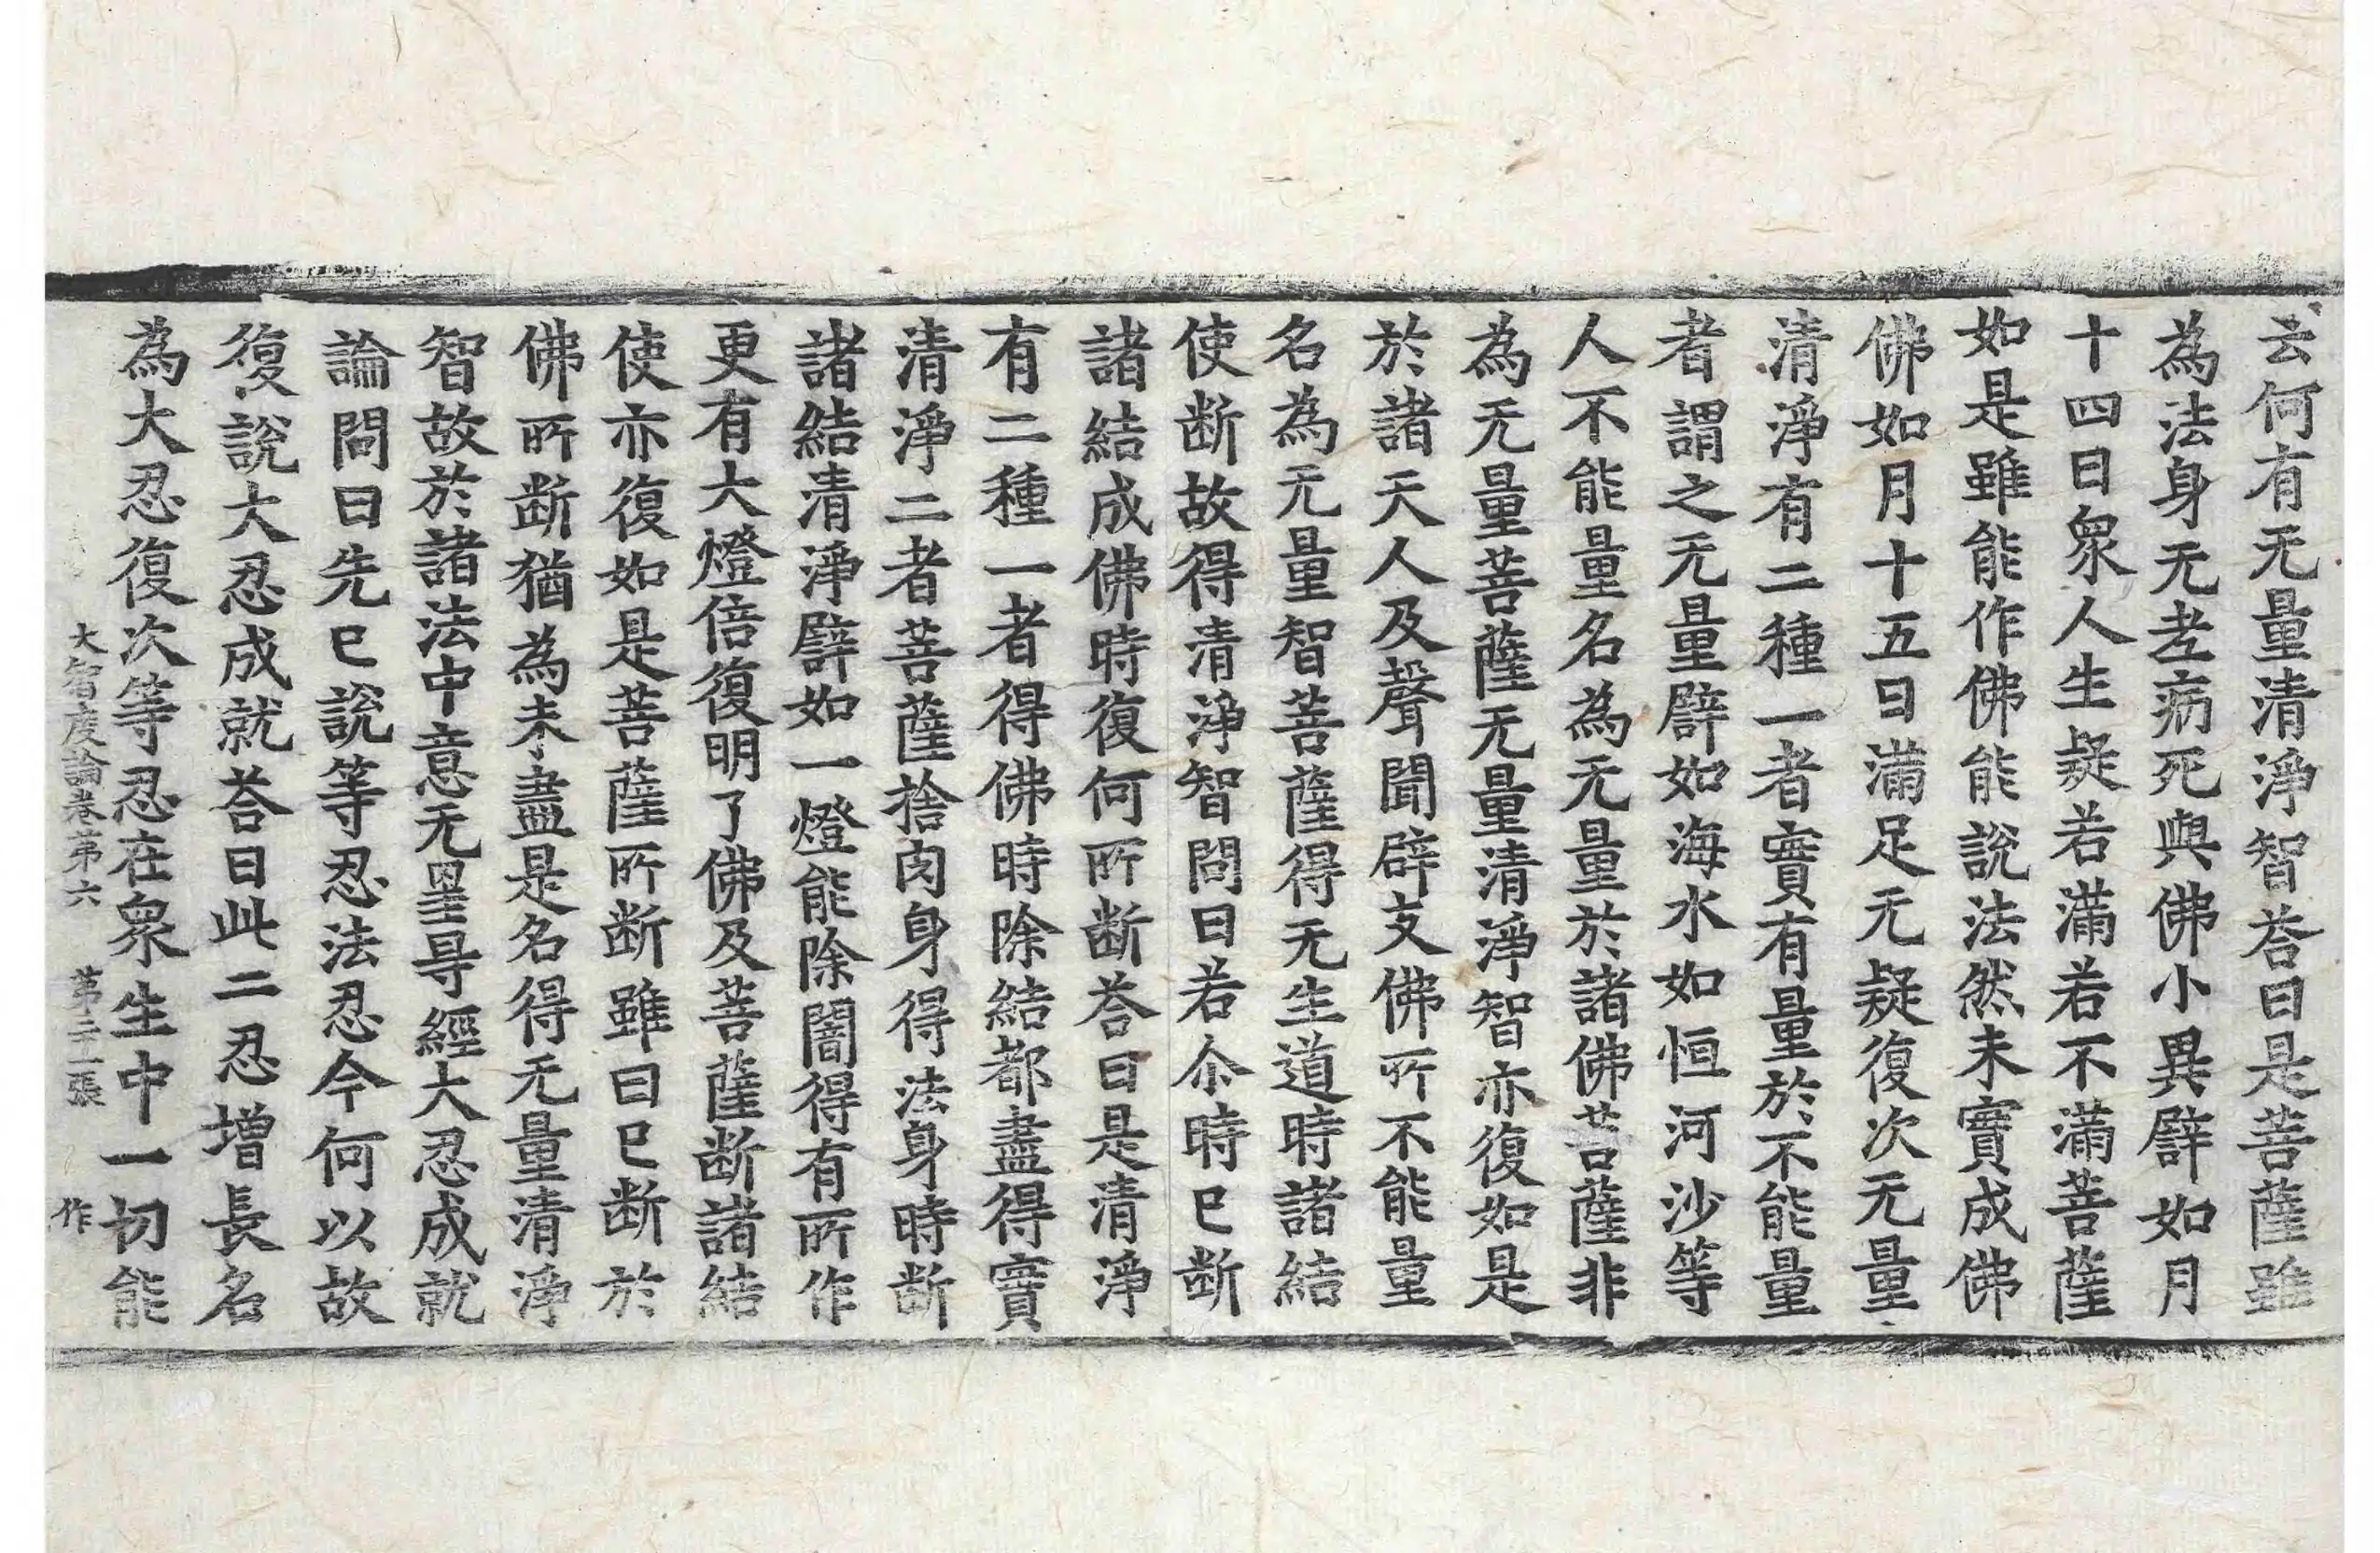 云何有无量清淨智荅曰是菩薩雖
為法身无老病死與佛小異譬如月
十四日衆人生疑若滿若不滿菩薩
如是雖能作佛能說法然未實成佛
佛如月十五日滿足无疑復次无量
清淨有二種一者實有量於不能量
者謂之无量譬如海水如恒河沙等
人不能量名為无量於諸佛菩薩非
為无量菩薩无量清淨智亦復如是
於諸天人及聲聞辟支佛所不能量
名為无量智菩薩得无生道時諸結
使断故得清淨智問曰若尒時已断
諸結成佛時復何所断荅曰是清淨
有二種一者得佛時除結都盡得實
清淨二者菩薩捨肉身得法身時断
諸結清淨譬如一燈能除闇得有所作
更有大燈倍復明了佛及菩薩断諸結
使亦復如是菩薩所断雖曰已断於
佛所断猶為未盡是名得无量清淨
智故於諸法中意无罣㝵經大忍成就
論問曰先已說等忍法忍今何以故
復說大忍成就荅曰此二忍增長名
為大忍復次等忍在衆生中一切能
大智度論卷第六 第二十一張 作